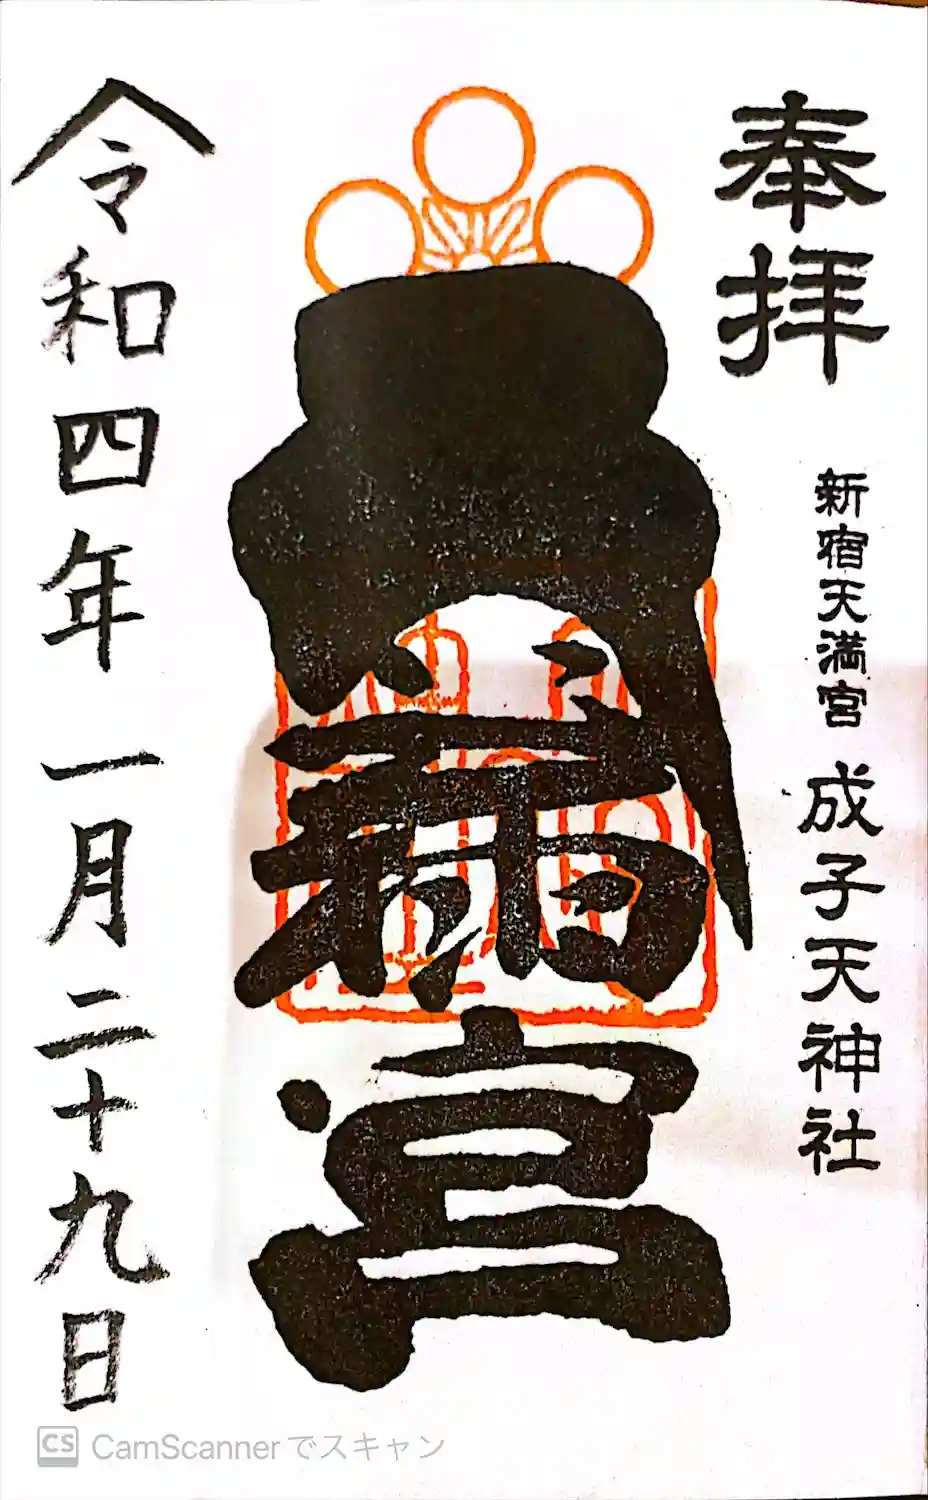 奉拝
新宿天満宮 成子天神社
天満宮
令和四年 一月二十九日
CS CamScannerでスキャン